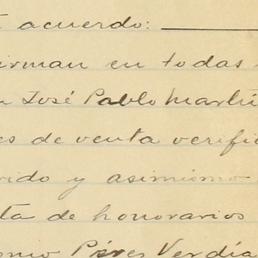 acuerdo:
irman en todas
José Pablo Martí
es de venta verific
rido y asimismo
ta de honorarios
onio Pérez Verdía